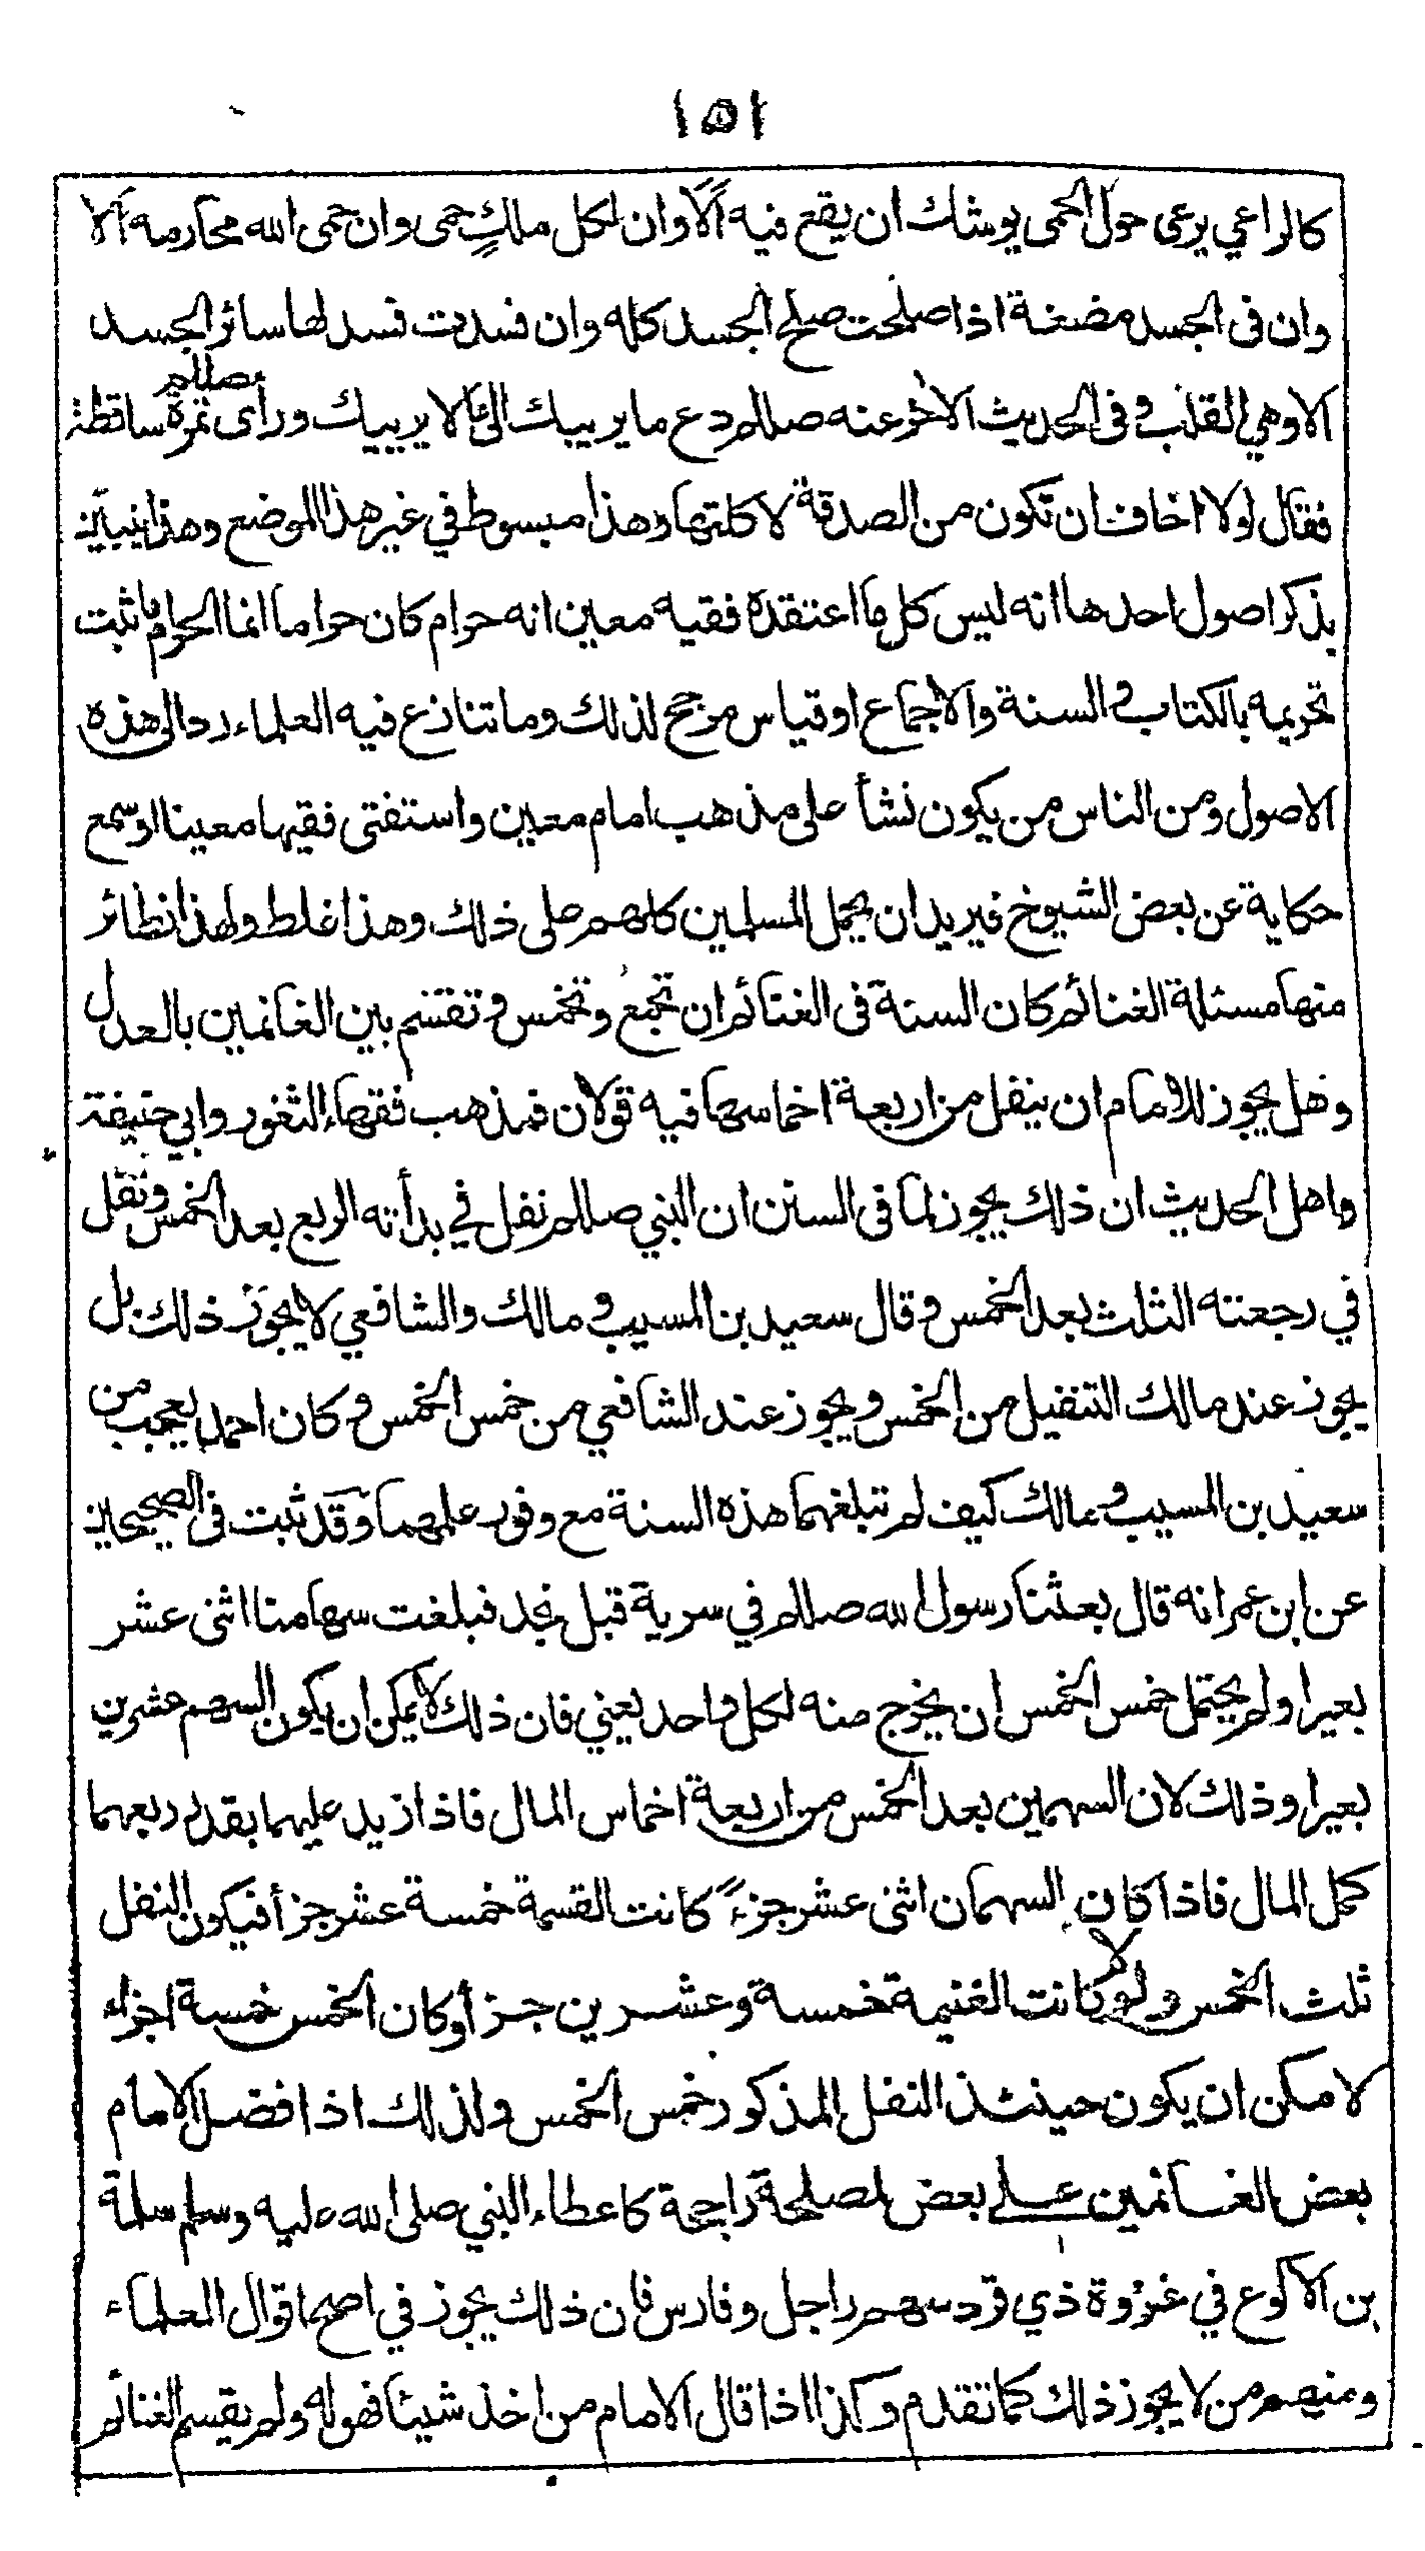 ١٥١
كالراعي يرعى حول الحمى يوشك ان يقع فيه ألا وان لكل ملكٍ حمى وان حمى الله محارمه ألا
وان فى الجسد مضغة اذا صلحت صلح الجسد كله وان فسدت فسد لها سائر الجسد
الا وهي القلب وفى الحديث الآخر عنه صللم دع ما يريبك الى مالا يريبك ورأى صللم تمرة ساقطة
فقال لولا اخاف ان تكون من الصدقة لاكلتها وهذا مبسوط في غير هذا الموضع وهذا يتبين
بذكر اصول احدها انه ليس كل ما اعتقده فقيه معين انه حرام كان حراما انما الحرام ما ثبت
تحريمه بالكتاب والسنة والاجماع او قياس مرجح لذلك وما تنازع فيه العلماء رد الى هذه
الاصول ومن الناس من يكون نشأ على مذهب امام معين واستفتى فقيها معينا او سمع
حكاية عن بعض الشيوخ فيريد ان يحمل المسلمين كلهم على ذلك وهذا غلط ولهذا نظائر
منها مسئلة الغنائم كان السنة فى الغنائم ان تجمع وتخمس وتقتسم بين الغانمين بالعدل
وهل يجوز للامام ان ينفل من اربعة اخماسها فيه قولان فمذهب فقهاء الثغور وابي حنيفة
واهل الحديث ان ذلك يجوز لما فى السنن ان النبي صللم نفل في بدأته الربع بعد الخمس ونفل
في رجعته الثلث بعد الخمس وقال سعيد بن المسيب ومالك والشافعي لا يجوز ذلك بل
يجوز عند مالك التنفيل من الخمس ويجوز عند الشافعي من خمس الخمس وكان احمد يعجب من
سعيد بن المسيب ومالك كيف لم تبلغهما هذه السنة مع وفور علمهما وقد ثبت فى الصحيحين
عن ابن عمر انه قال بعثنا رسول الله صللم في سرية قبل نجد فبلغت سهامنا اثنى عشر
بعيرا ولم يحتمل خمس الخمس ان يخرج منه لكل واحد يعني فان ذلك لا يمكن ان يكون السهم عشرين
بعيرا وذلك لان السهمين بعد الخمس من اربعة اخماس المال فاذا زيد عليهما بقدر ربعهما
كمل المال فاذا كان السهمان اثنى عشر جزءً كانت القسمة خمسة عشر جزأ فيكون النفل
ثلث الخمس ولو كانت الغنيمة خمسة وعشرين جزأ وكان الخمس خمسة اجزاء
لا مكن ان يكون حينئذ النفل المذكور خمس الخمس ولذلك اذا فضل الامام
بعض الغانمين على بعض لمصلحة راجحة كاعطاء النبي صلى الله عليه وسلم سلمة
بن الاكوع في غزوة ذي قرد سهم راجل وفارس فان ذلك يجوز في اصح اقوال العلماء
ومنهم من لا يجوز ذلك كما تقدم وكذا اذا قال الامام من اخذ شيئا فهو له ولم يقسم الغنائم